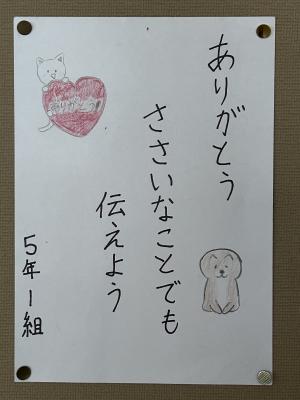 ありがとう
ささいなことでも
伝えよう
5年1組
ありがとう